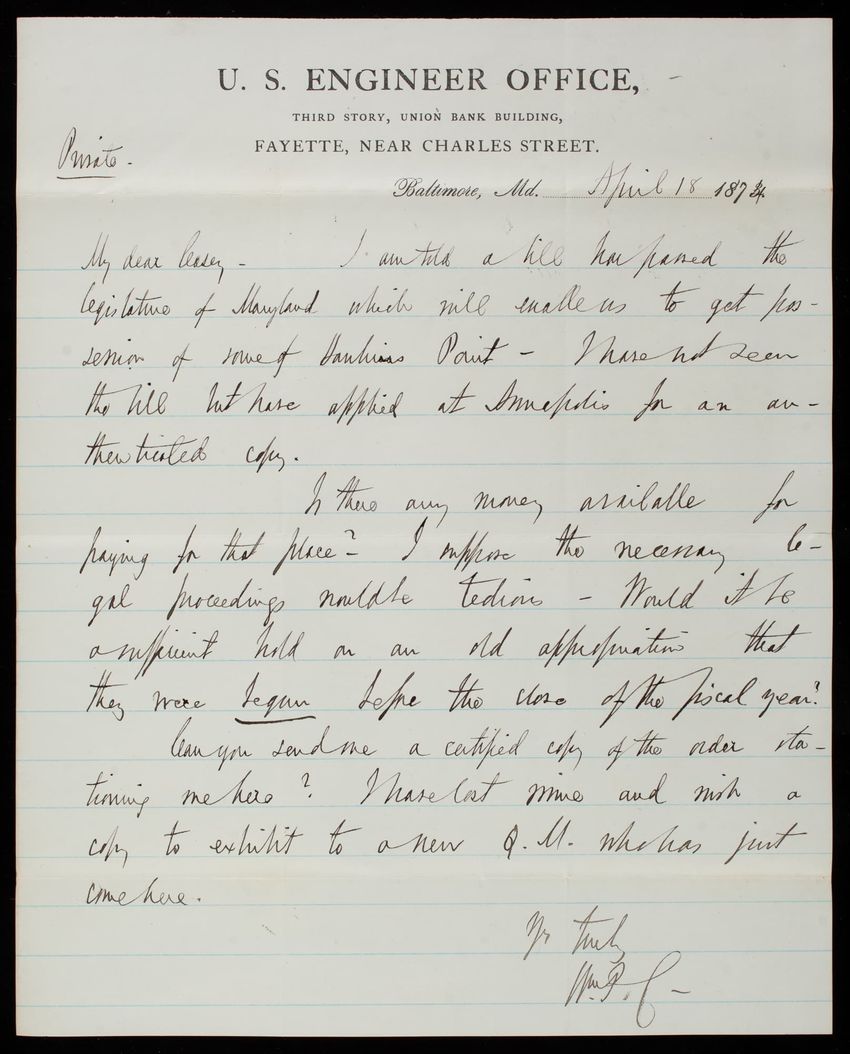 U. S. ENGINEER OFFICE,
THIRD STORY, UNION BANK BUILDING,
FAYETTE, NEAR CHARLES STREET.
Private.
Baltimore, Md. April 18 1874
My dear Casey - I am told a bill has passed the
legislature of Maryland which will enable us to get pos-
session of some of Hawkins Point - I have not seen
the bill but have applied at Annapolis for an au-
thenticated copy.
Is there any money available for
paying for that place? - I suppose the necessary le-
gal proceedings would be tedious - Would it be
a sufficient hold on an old appropriation that
they were begun before the close of the fiscal year?
Can you send me a certified copy of the order sta-
tioning me here? I have lost mine and wish a
copy to exhibit to a new Q. M. who has just
come here.
Yr truly
Wm. P. C -